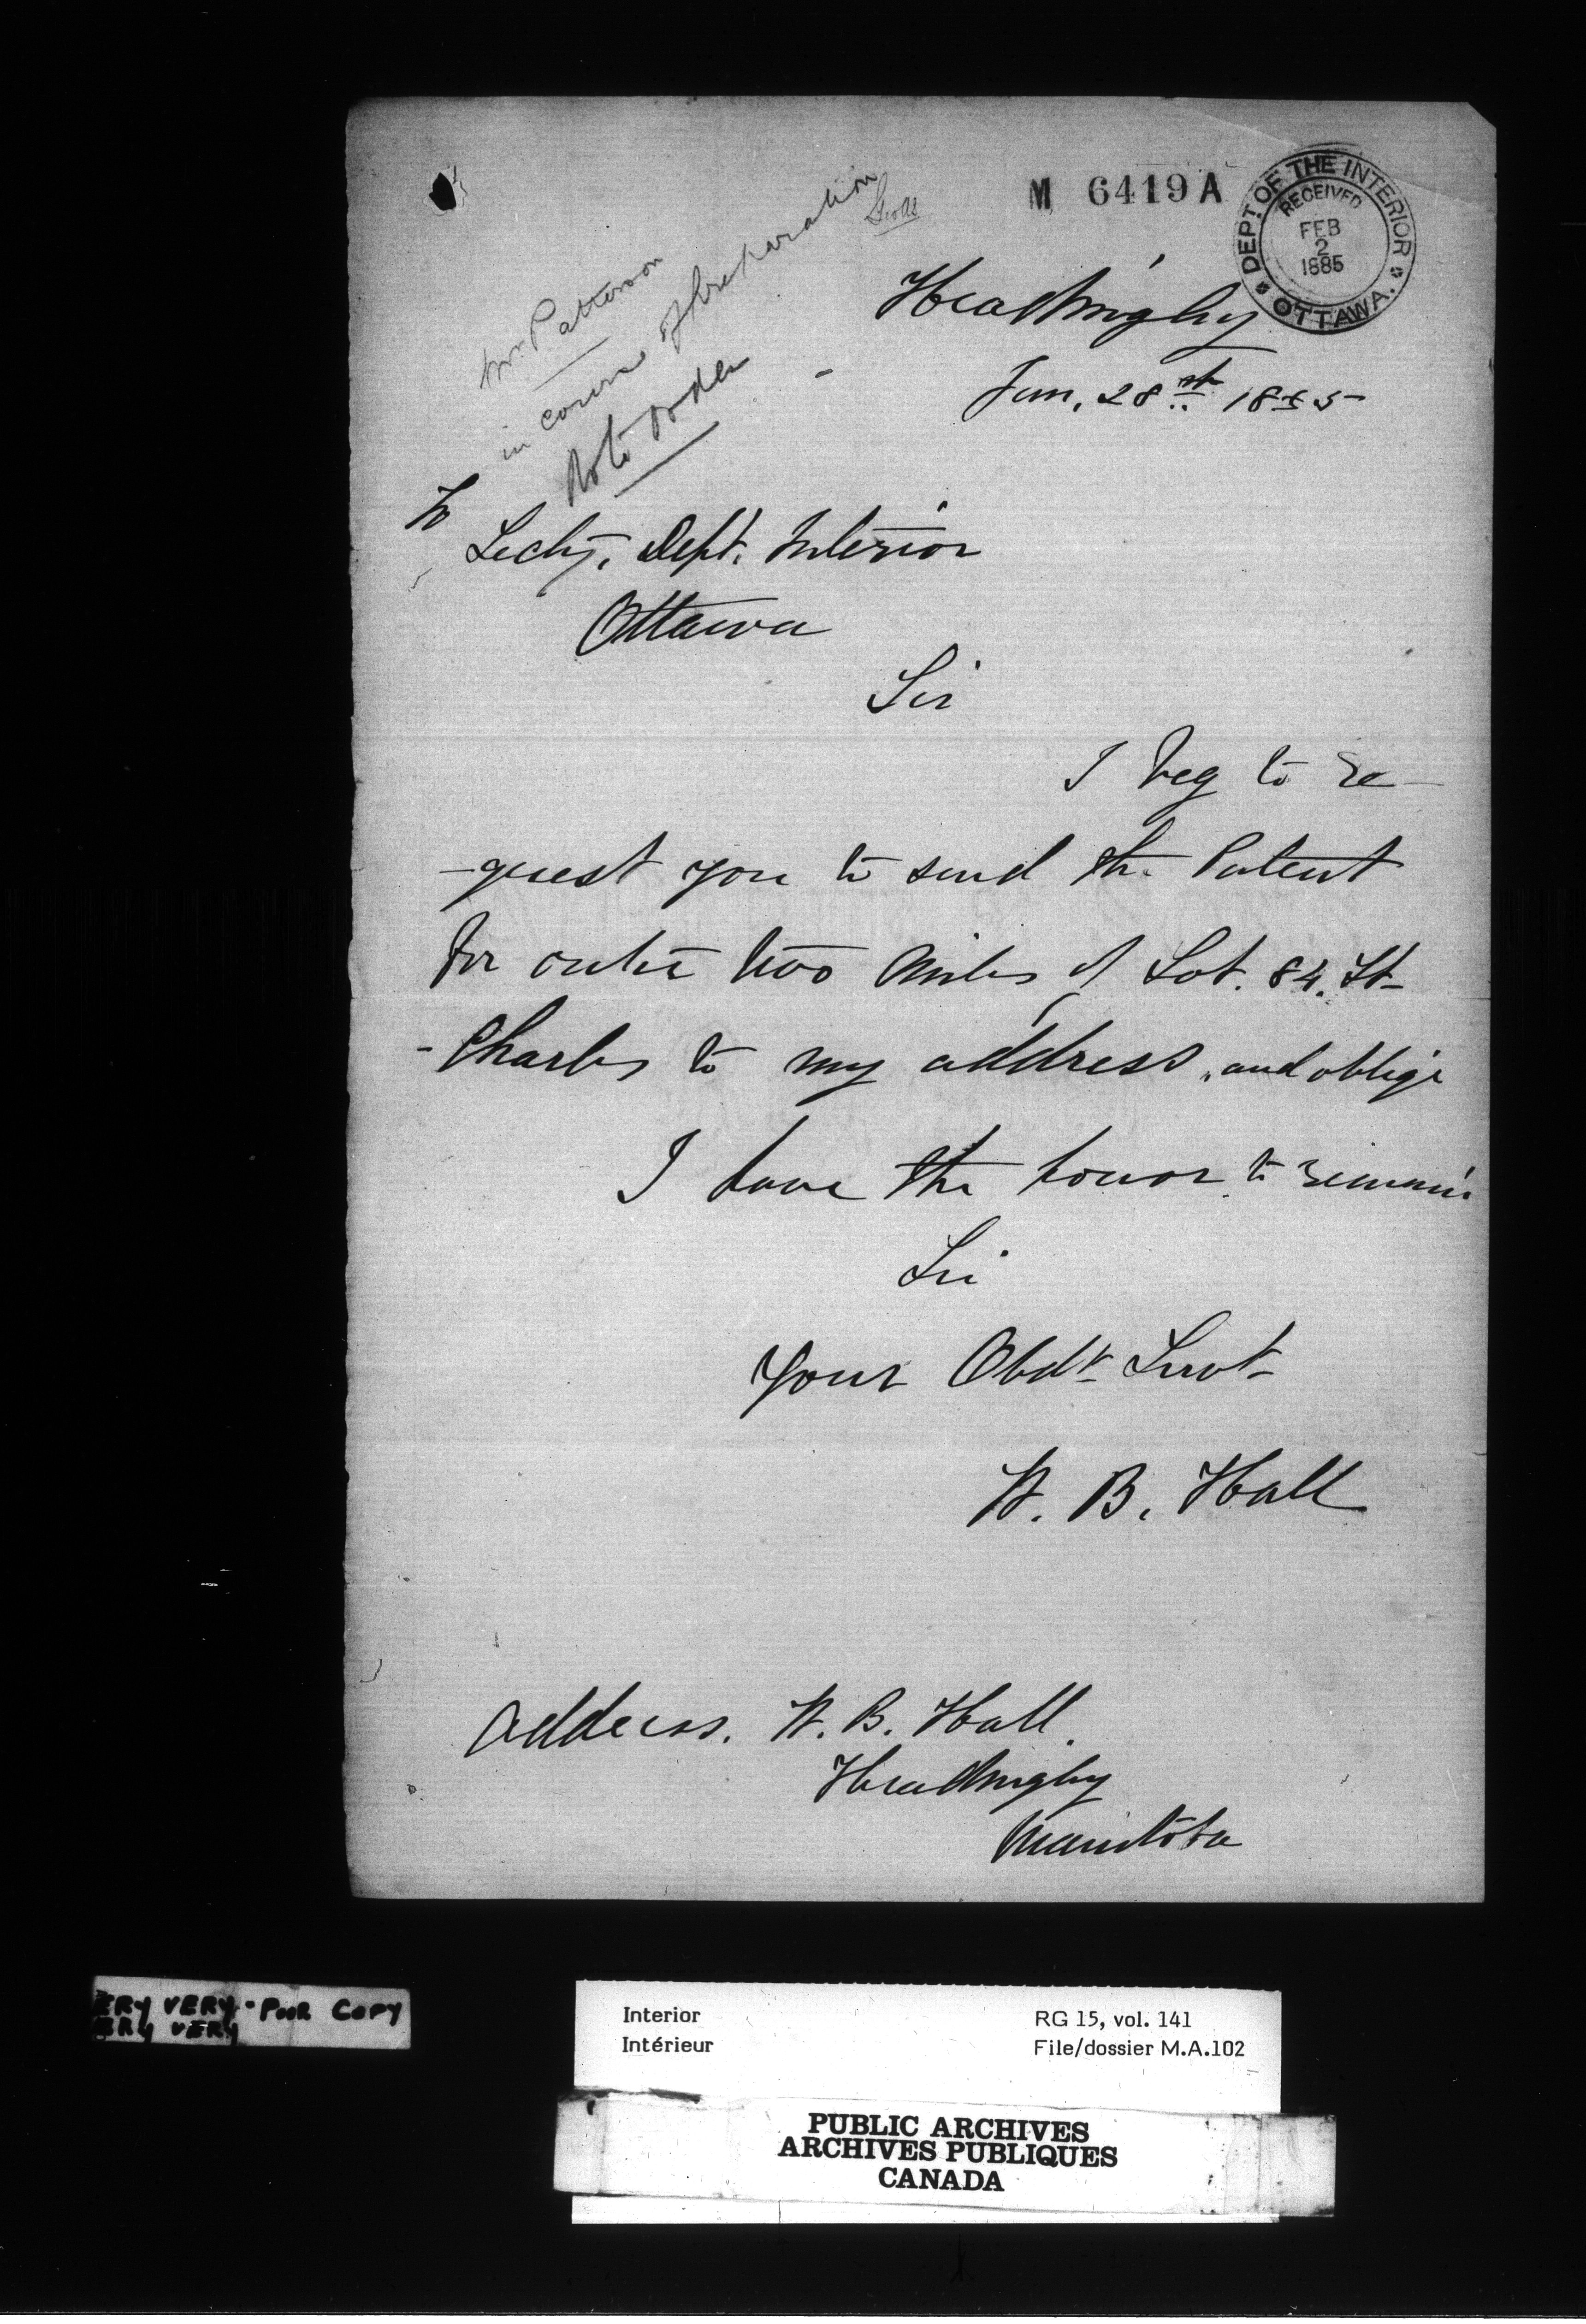 M 6419 A
DEPT OF THE INTERIOR
RECEIVED
FEB
2
1885
OTTAWA.
Headingly
Jan. 28th 1885
Mr. Patterson
in course of preparation
Note order
To
Secty. Dept. Interior
Ottawa
Sir
I beg to re-
-quest you to send the Patent
for outer two miles of Lot. 84. St-
-Charles to my address, and oblige
I have the honor to remain
Sir
Your Obdt Servt
W. B. Hall
Address. W. B. Hall.
Headingly
Manitoba
ERY VERY - POOR COPY
ERY VERY
Interior RG 15, vol. 141
Intérieur File/dossier M.A.102
PUBLIC ARCHIVES
ARCHIVES PUBLIQUES
CANADA